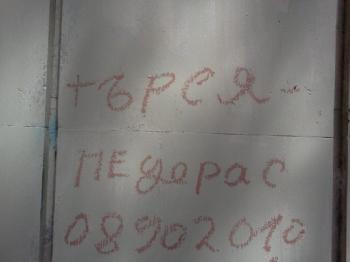 търся
педарас
08902010